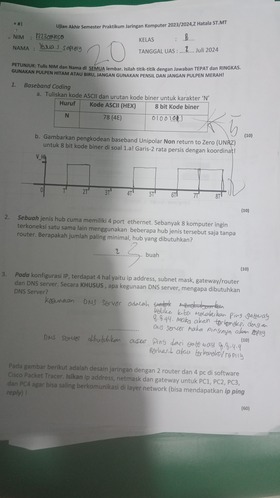 # A1
Ujian Akhir Semester Praktikum Jaringan Komputer 2023/2024,Z Halala ST.MT
NIM :
KELAS : B
NAMA :
TANGGAL UAS : 2 Juli 2024
20
PETUNJUK: Tulis NIM dan Nama di SEMUA lembar. Isilah titik-titik dengan Jawaban TEPAT dan RINGKAS.
GUNAKAN PULPEN HITAM ATAU BIRU, JANGAN GUNAKAN PENSIL DAN JANGAN PULPEN MERAH!
1. Baseband Coding
a. Tuliskan kode ASCII dan urutan kode biner untuk karakter 'N'
Huruf Kode ASCII (HEX) 8 bit Kode biner
N 78 (4E)
[10]
b. Gambarkan pengkodean baseband Unipolar Non return to Zero (UNRZ)
untuk 8 bit kode biner di soal 1.a! Garis-2 rata persis dengan koordinat!
[10]
2. Sebuah jenis hub cuma memiliki 4 port ethernet. Sebanyak 8 komputer ingin
terkoneksi satu sama lain menggunakan beberapa hub jenis tersebut saja tanpa
router. Berapakah jumlah paling minimal, hub yang dibutuhkan?
buah
[10]
3. Pada konfigurasi IP, terdapat 4 hal yaitu ip address, subnet mask, gateway/router
dan DNS server. Secara KHUSUS, apa kegunaan DNS server, mengapa dibutuhkan
DNS Server?
Kegunaan DNS Server adalah
ketika kita melakukan Ping gateway
8.8.4.4 maka akan terkoneksi dengan
DNS server maka
[10]
DNS server dibutuhkan agar Ping dari gateway 8.8.4.4
Pada gambar berikut adalah desain jaringan dengan 2 router dan 4 pc di software
Cisco Packet Tracer. Isikan ip address, netmask dan gateway untuk PC1, PC2, PC3,
dan PC4 agar bisa saling berkomunikasi di layer network (bisa mendapatkan ip ping
reply) !
[60]